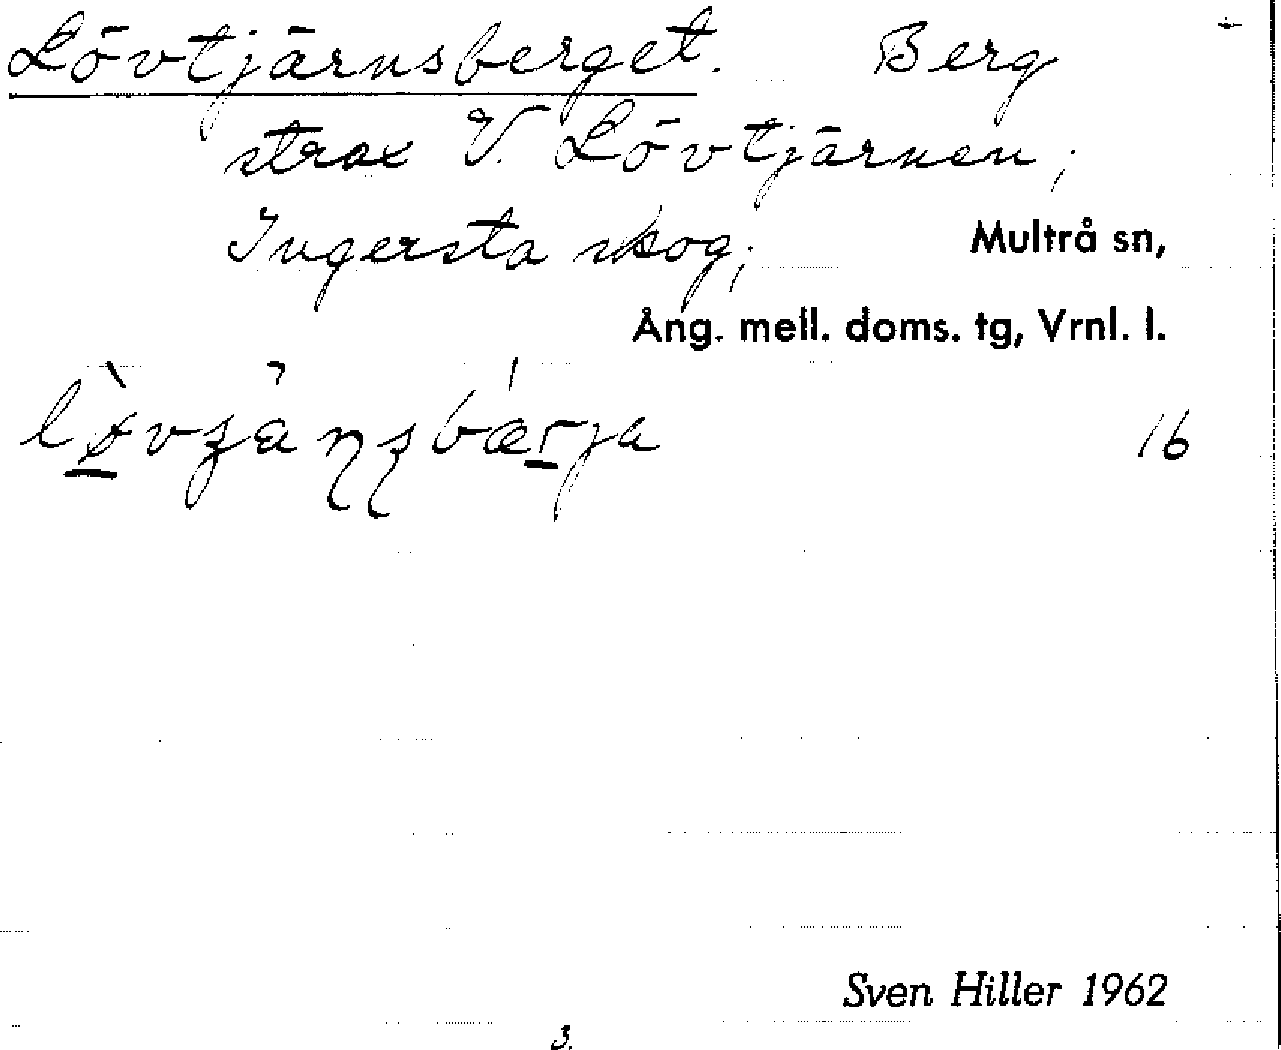 Lövtjärnsberget. Berg
strax V. Lövtjärnen;
Ingersta skog; Multrå sn,
Ång. mell. doms. tg, Vrnl. l.
16
Sven Hiller 1962
3.